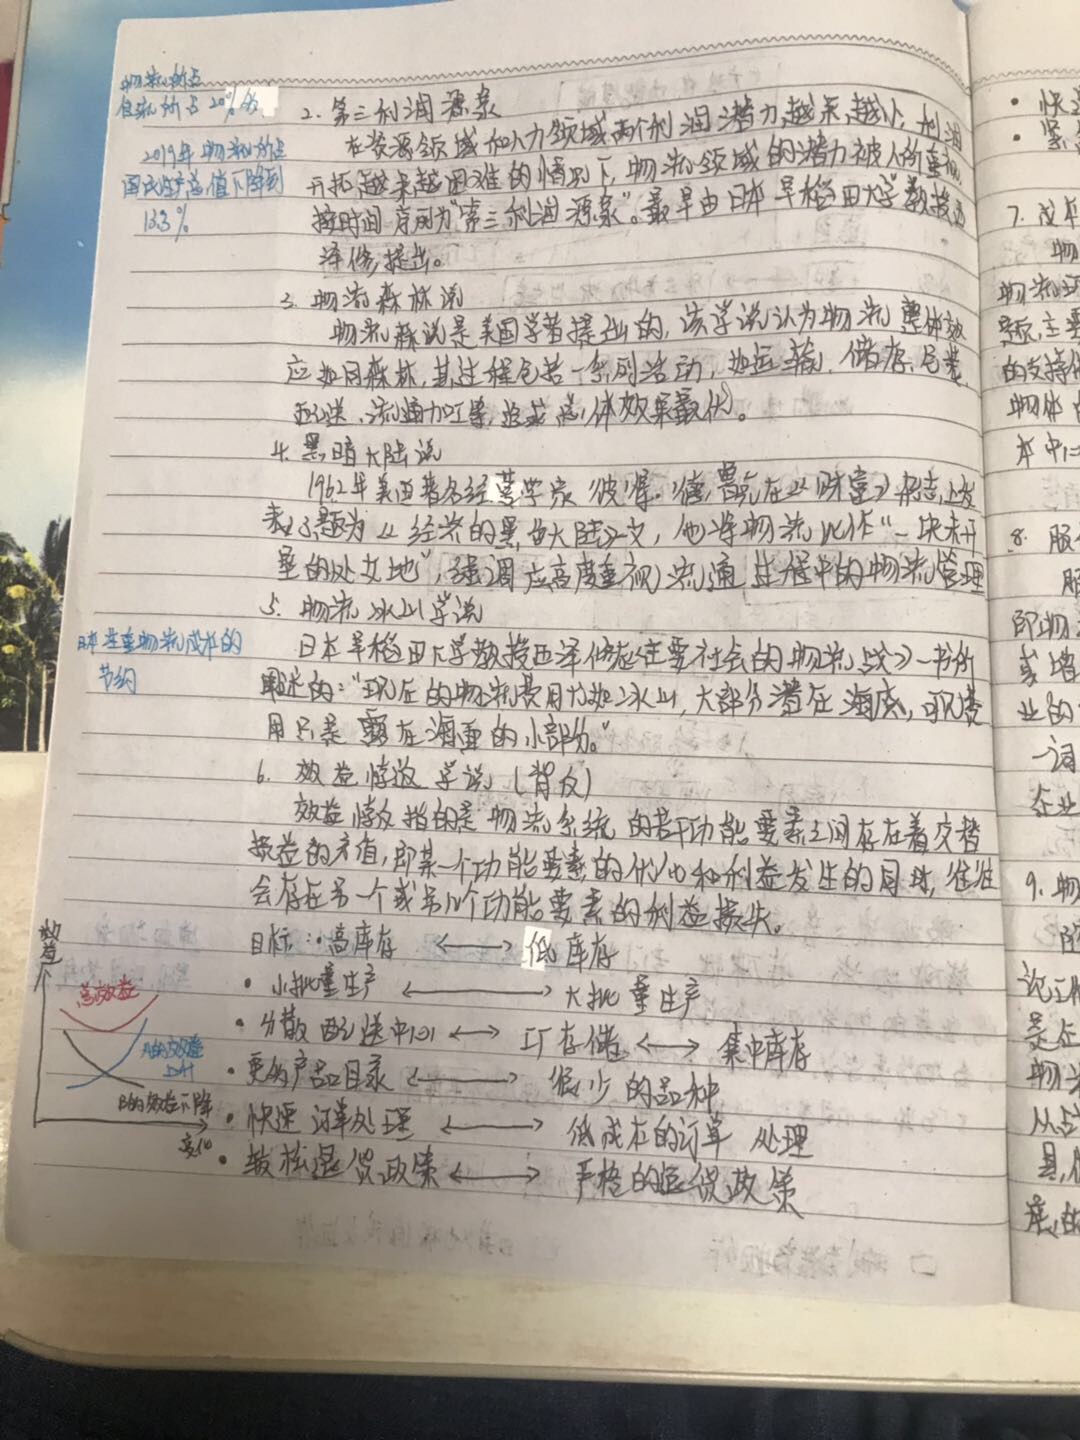 物流所占
自然所占 20%多
2019年物流所占
国民生产总值下降到
13.3%
2. 第三利润源泉
在资源领域和人力领域两个利润潜力越来越小，利润
开拓越来越困难的情况下，物流领域的潜力被人所重视
按时间序列为"第三利润源泉"。最早由日本早稻田大学教授西
泽修提出。
3. 物流森林说
物流森说是美国学者提出的，该学说认为物流整体效
应如同森林，其过程包若一系列活动，如运输、储存、包装、
配送、流通加工等，追求总体效果最优。
4. 黑暗大陆说
1962年美国著名经营学家彼得·德鲁克在《财富》杂志上发
表了题为《经济的黑色大陆》一文，他将物流比作"一块未开
垦的处女地"，强调应高度重视流通过程中的物流管理
5. 物流冰山学说
日本注重物流成本的
节约
日本早稻田大学教授西泽修在《主要社会的物流战》一书所
阐述的："现在的物流费用犹如冰山，大部分潜在海底，可见费
用只是露在海面的小部分。"
6. 效益悖反学说（背反）
效益悖反指的是物流系统的若干功能要素之间存在着交替
损益的矛盾，即某一个功能要素的优化和利益发生的同时，往往
会存在另一个或另几个功能要素的利益损失。
目标：·高库存 ⟷ 低库存
· 小批量生产 ⟷ 大批量生产
· 分散配送中心 ⟷ 工厂存储 ⟷ 集中库存
· 更多产品目录 ⟷ 很少的品种
· 快速订单处理 ⟷ 低成本的订单处理
· 较松退货政策 ⟷ 严格的退货政策
效益
总效益
A的效益
上升
B的效益下降
· 快速
· 紧
7. 成本
物
物流
题，主要
的支持
物体
本中心
8. 服
服
即物
或增
业的
一词
企业
9. 物
论工
是在
物
从占
县，